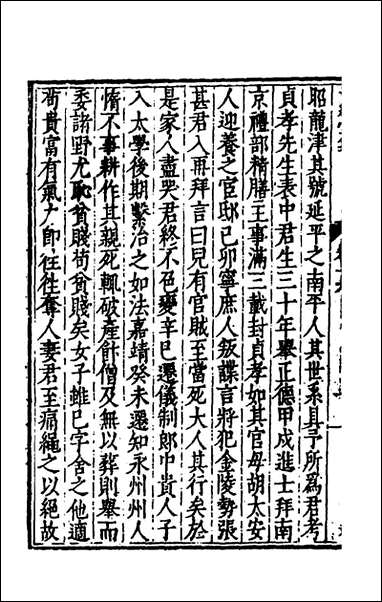 昭龍津其號延平之南平人其世系具予所為君考
貞孝先生表中君生三十年舉正德甲戌進士拜南
京禮部精膳主事滿三載封貞孝如其官母胡太安
人迎養之官邸己卯寧庶人叛諜言將犯金陵勢張
甚君入再拜言曰兒有官賊至當死大人其行矣於
是家人盡哭君終不色變辛巳遷儀制郎中貴人子
入太學後期繫治之如法嘉靖癸未遷知永州州人
惰不事耕作其親死輒破產飰僧及無以葬則舉而
委諸野尤恥貧賤苟貧賤矣女子雖已字舍之他適
茍貴富有氣力即往往奪人妻君至痛繩之以絕故